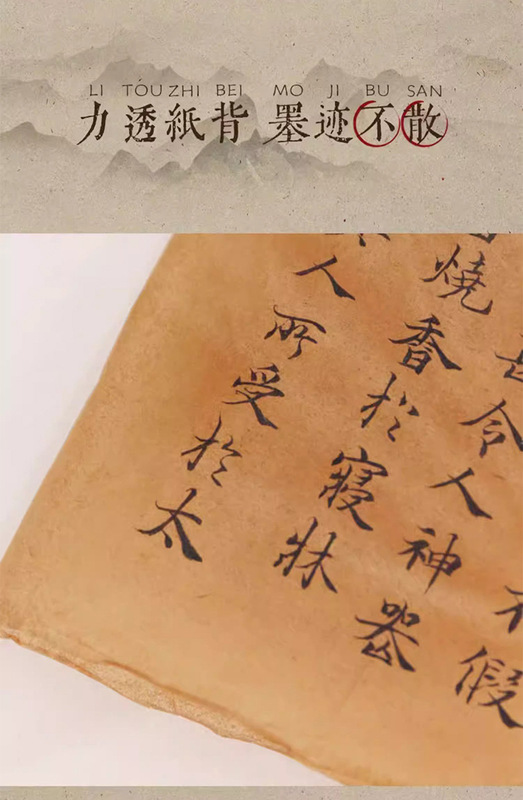 LI TOU ZHI BEI MO JI BU SAN
力透紙背 墨迹不散
不假
令人神
燒香於寢牀
人所受於太